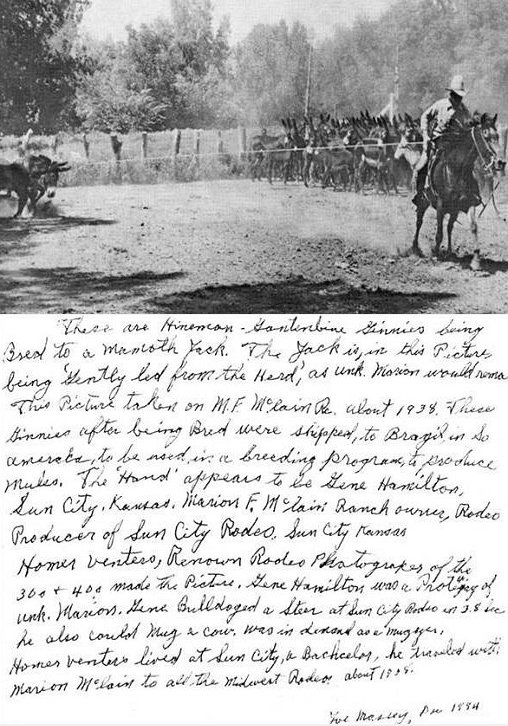 These are Hineman - Gantenbine Ginnies being
Bred to a Mamoth Jack. The Jack is, in this Picture,
being 'Gently led from the Herd', as unk. Marion would rema
This Picture taken on M.F. McLain Ra. about 1938. These
Ginnies after being Bred were shipped, to Brazil, in So
america, to be used, in a breeding program, to produce
Mules. The 'Hand' appears to be Gene Hamilton,
Sun City, Kansas. Marion F. McLain Ranch owner, Rodeo
Producer of Sun City Rodeo. Sun City Kansas
Homer Venters, Renown Rodeo Photograper of the
30s + 40s made the Picture. Gene Hamilton was a Protigey of
unk. Marion. Gene Bulldoged a Steer at Sun City Rodeo in 38
he also could Mug a cow. was in demand as a mugger.
Homer Venters lived at Sun City, a Bachelor, he traveled with
Marion McLain to all the Midwest Rodeos about 1938.
Massey, 1994